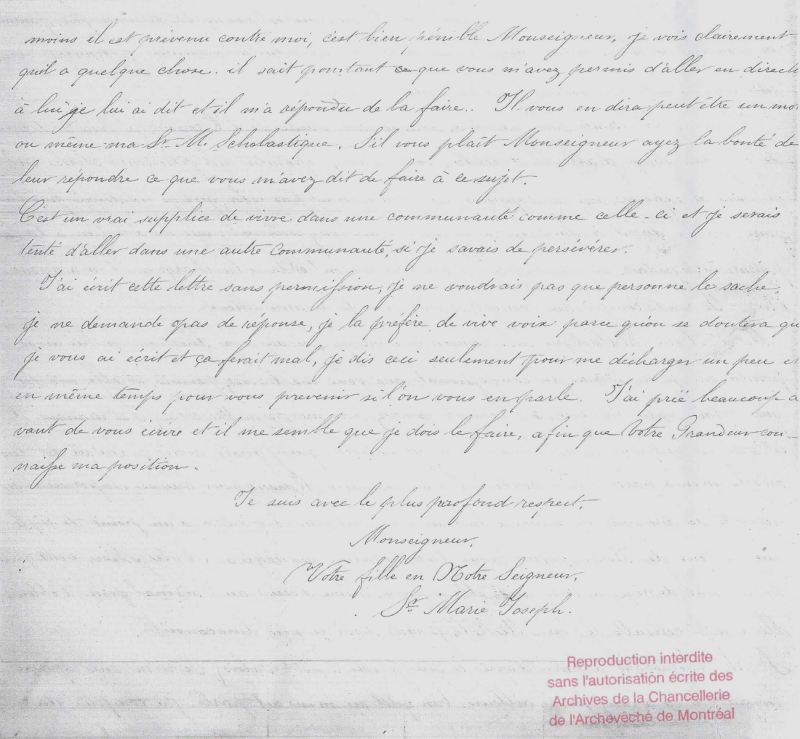 moins il est prévenu contre moi, c'est bien pénible Monseigneur, je vois clairement
qu'il a quelque chose. il sait pourtant ce que vous m'avez permis d'aller en directi
à lui je lui ai dit et il m'a répondu de la faire. Il vous en dira peut être un mo
ou même ma Sr. M. Scholastique. S'il vous plaît Monseigneur ayez la bonté de
leur répondre ce que vous m'avez dit de faire à ce sujet.
C'est un vrai supplice de vivre dans une communauté comme celle-ci et je serais
tenté d'aller dans une autre communauté, si je savais de persévérer.
J'ai écrit cette lettre sans permission, je ne voudrais pas que personne le sache
je ne demande pas de réponse, je la préfère de vive voix parce qu'on se doutera qu
je vous ai écrit et ça ferait mal, je dis ceci seulement pour me décharger un peu e
en même temps pour vous prevenir si l'on vous en parle. J'ai prié beaucoup a
vant de vous écrire et il me semble que je dois le faire, afin que Votre Grandeur con-
naisse ma position.
Je suis avec le plus profond respect.
Monseigneur,
Votre fille en Notre Seigneur,
Sr. Marie Joseph.
Reproduction interdite
sans l'autorisation écrite des
Archives de la Chancellerie
de l'Archevêché de Montréal